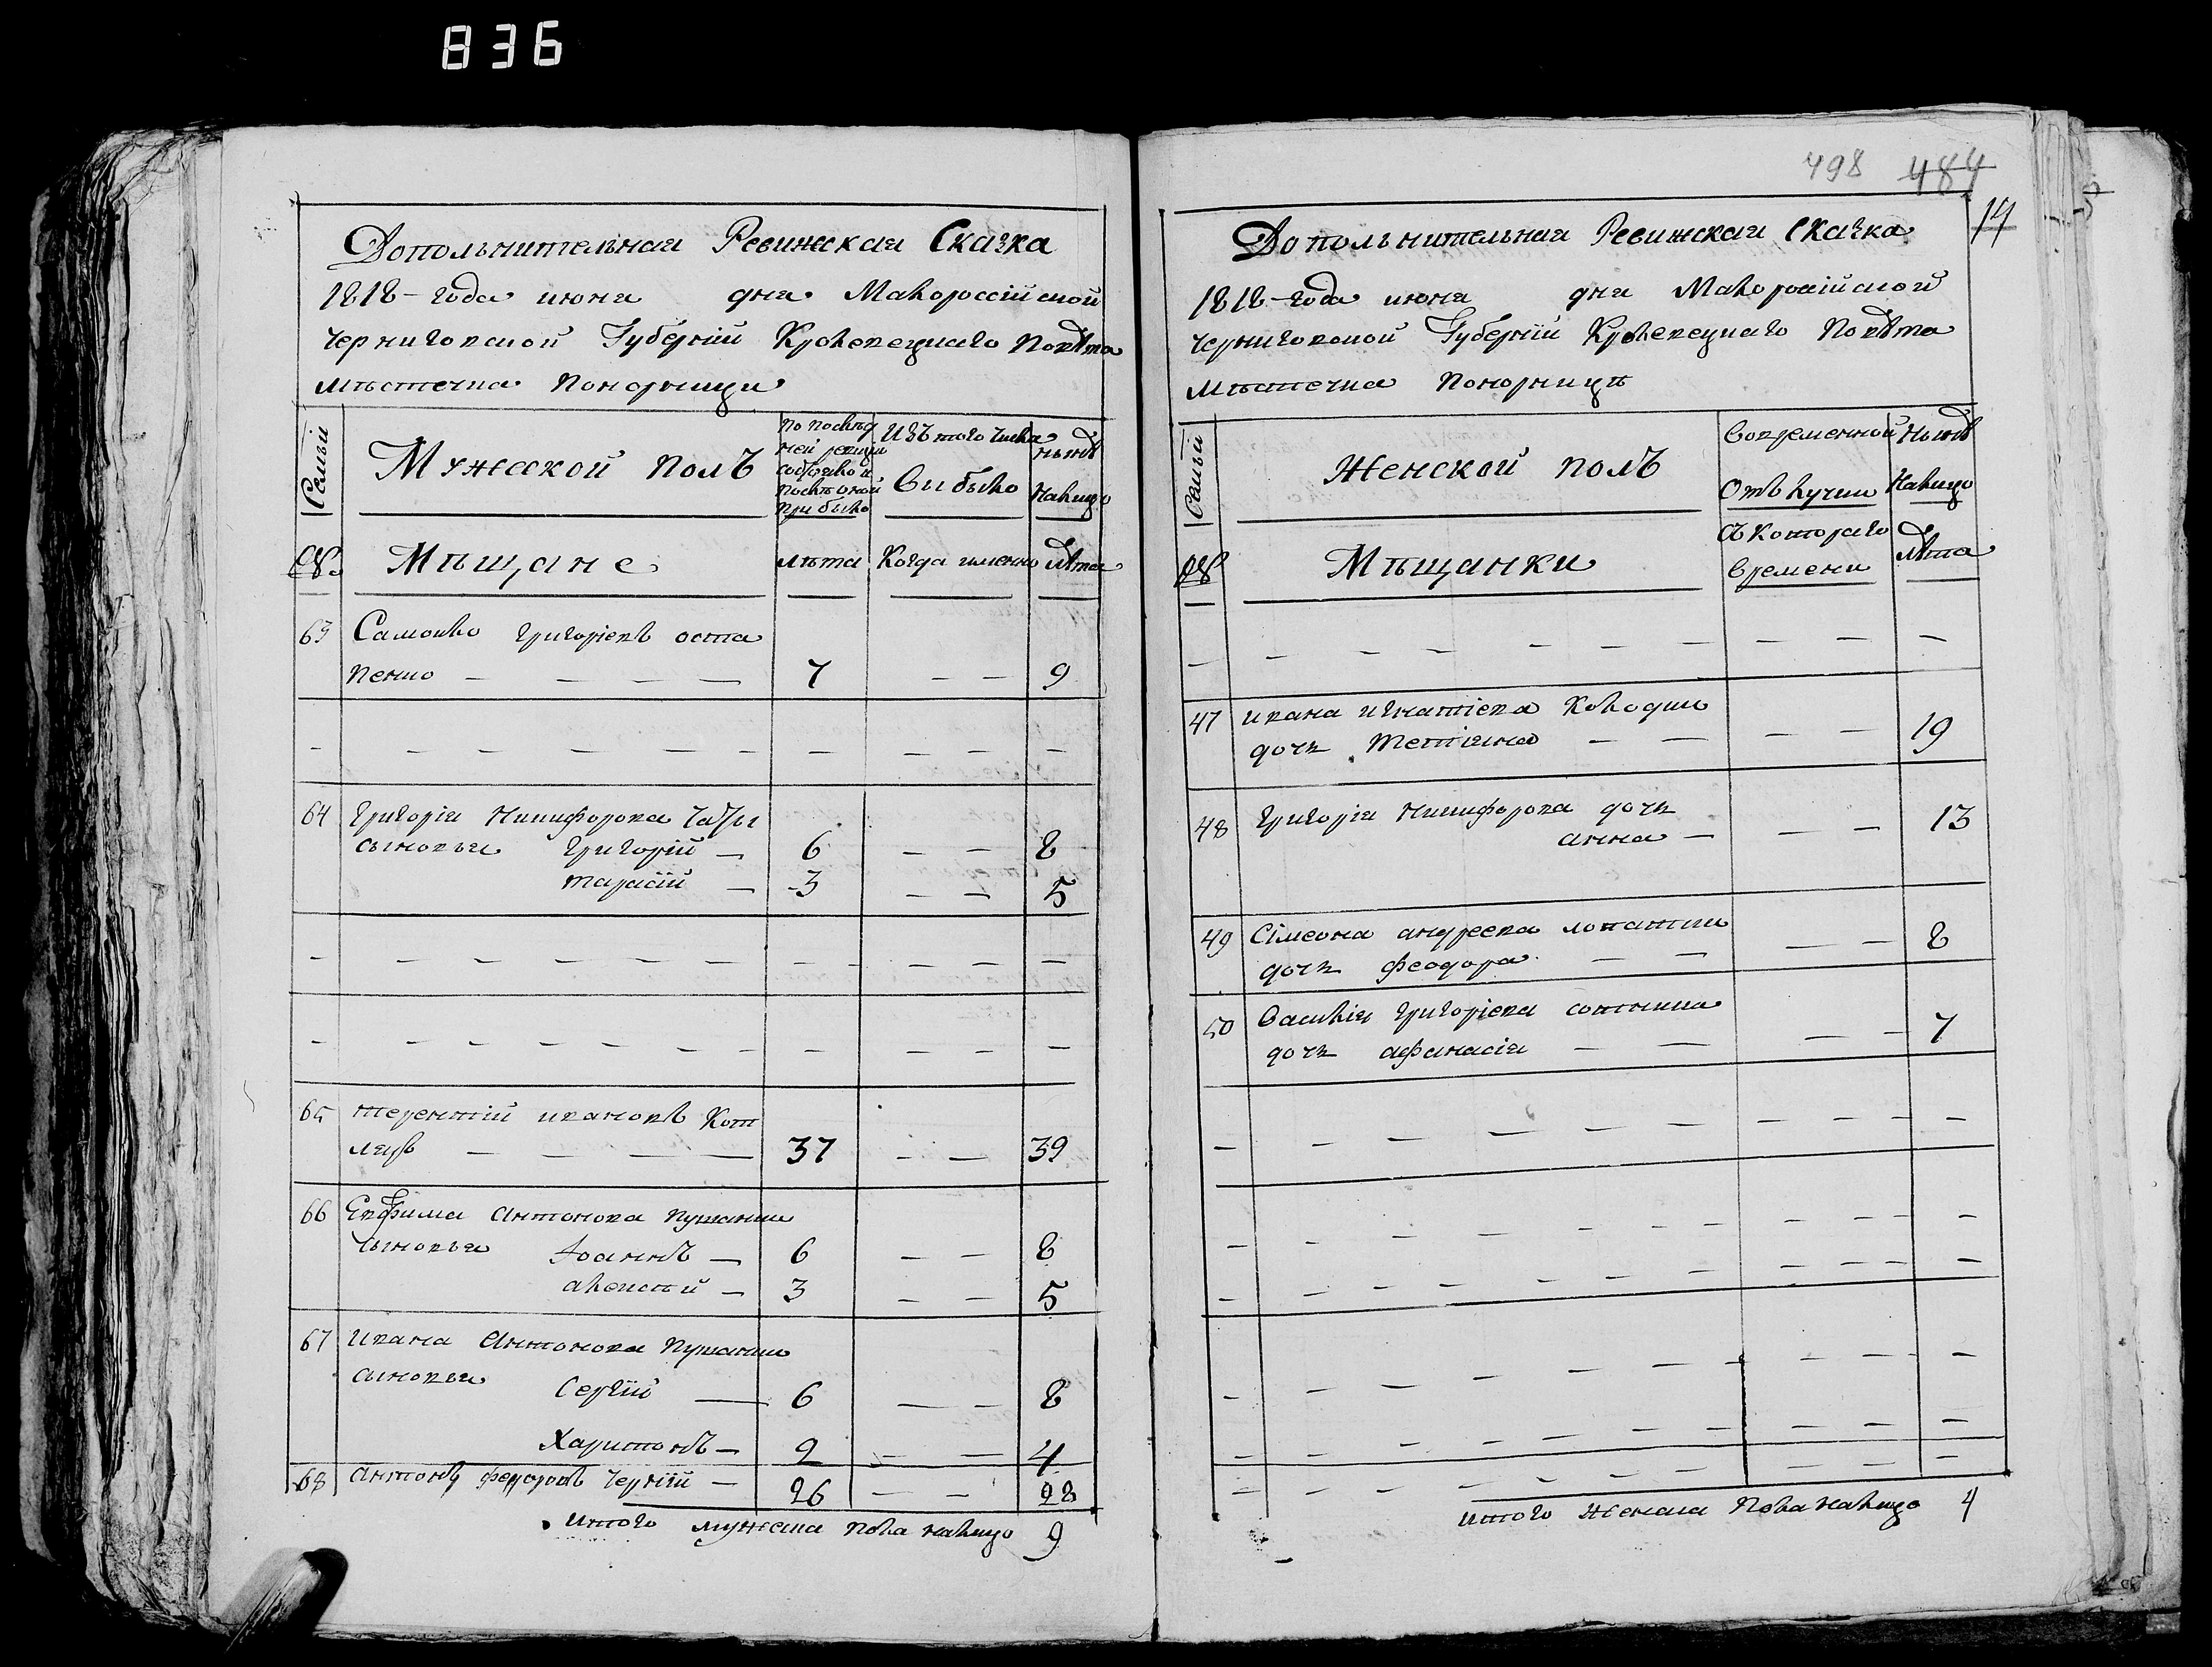 836
Дополънителная Ревижская Сказка
1818-года июня дня Малоросiйской
Черниговской Губернiи Кролевецкаго Повѣта
Мѣстечка Понорници
Семьи
Мужеской полъ
По послѣд
ней ревизи
состояло и
послѣ оной
прибыло
Изъ того числа
Выбыло
нынѣ
Налицо
№
Мѣщане
Лѣта
Когда именно
Лѣта
63 Самойло Григорiевъ Оста
пенко — — — — 7 — — 9
— — — — — — — — — — —
64 Григорiя Никифорова
сыновья Григорiй — 6 — — 8
Тарасiй — 3 — — 5
— — — — — — — — — — — —
— — — — — — — — — — — —
65 Терентiй Ивановъ Кот
ляръ — — — — 37 — — 39
66 Евфима Антонова
сыновья Iоаннъ — 6 — — 8
Алексѣй — 3 — — 5
67 Ивана Антонова
сыновья Сергiй — 6 — — 8
Харитонъ — 2 — — 4
68 Антонъ Федоровъ Чернiй — 26 — — 28
Итого мужеска пола налицо 9
498 484
14
Дополънителная Ревижская Сказка
1818-года июня дня Малоросiйской
Черниговской Губернiи Кролевецкаго Повѣта
Мѣстечка Понорницѣ
Семьи
Женской полъ
Вовременной
Отълучки
Нынѣ
Налицо
№
Мѣщанки
Съ котораго
времени
Лѣта
— — — — — — — — — —
47 Ивана Игнатiева
дочь Тетiяна — — — — 19
48 Григорiя Никифорова дочь
Анна — — — 13
49 Сiмеона Андреева
дочь Феодора — — — — 8
50 Василiя Григорiева Сотника
дочь Афанасiя — — — — 7
— — — — — — — — — — —
— — — — — — — — — — —
— — — — — — — — — — —
— — — — — — — — — — —
— — — — — — — — — — —
— — — — — — — — — — —
Итого женска пола налицо 4